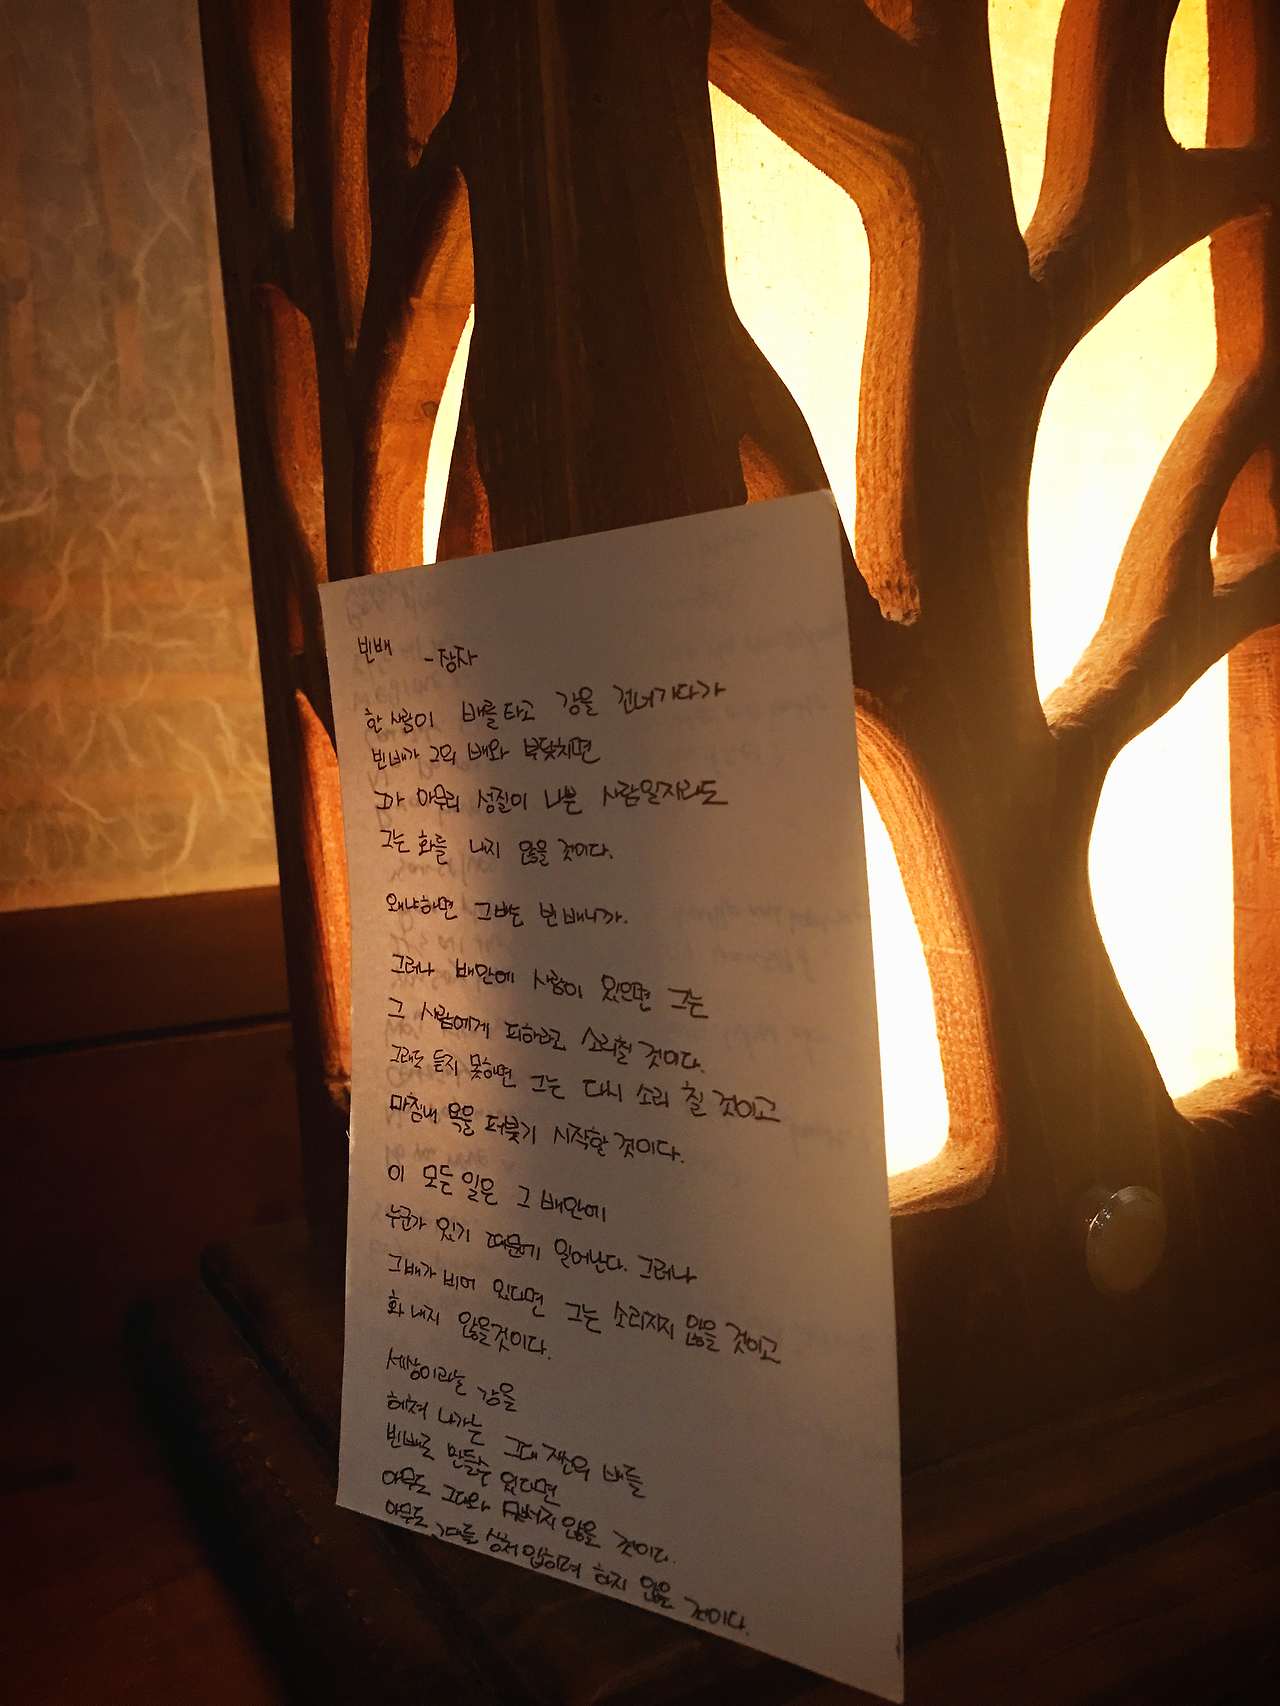 빈배
- 장자
한 사람이 배를 타고 강을 건너가다가
빈배가 그의 배와 부딪치면
그가 아무리 성질이 나쁜 사람일지라도
그는 화를 내지 않을 것이다.
왜냐하면 그배는 빈 배니까.
그러나 배안에 사람이 있으면 그는
그 사람에게 피하라고 소리칠 것이다.
그래도 듣지 못하면 그는 다시 소리 칠 것이고
마침내 욕을 퍼붓기 시작할 것이다.
이 모든 일은 그 배안에
누군가 있기 때문에 일어난다. 그러나
그배가 비어 있다면 그는 소리치지 않을 것이고
화 내지 않을것이다.
세상이라는 강을
헤쳐 나가는 그대 자신의 배를
빈배로 만들수 있다면
아무도 그대와 맞서지 않을 것이다.
아무도 그대를 상처 입히려 하지 않을 것이다.